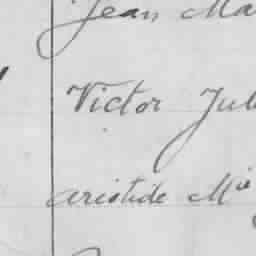 Jean Ma
Victor Jul
aristide Mie